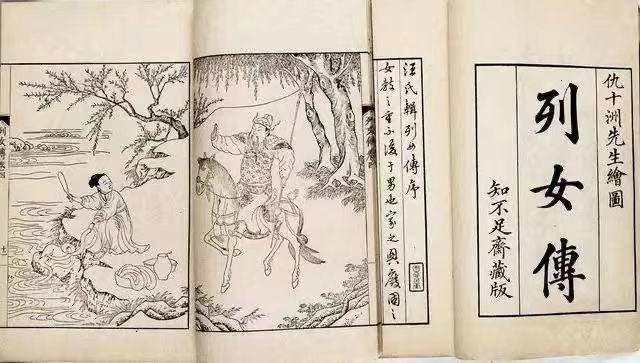 仇十洲先生繪圖
列女傳
知不足齋藏版
汪氏輯列女傳序
女教之重不後于男也家之興廢國之
列女傳